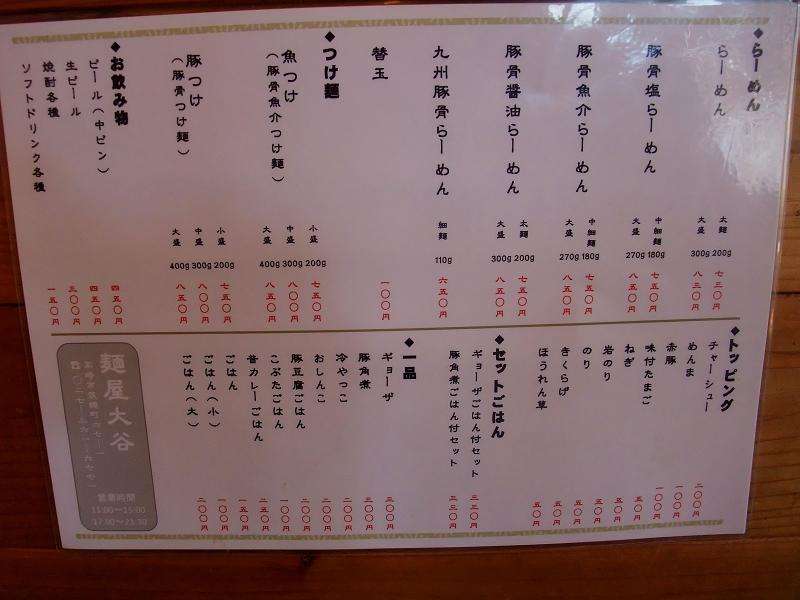 ◆らーめん
らーめん 太麺 200g 七三〇円
大盛 300g 八三〇円
豚骨塩らーめん 中細麺 180g 七五〇円
大盛 270g 八五〇円
豚骨魚介らーめん 中細麺 180g 七五〇円
大盛 270g 八五〇円
豚骨醤油らーめん 太麺 200g 七五〇円
大盛 300g 八五〇円
九州豚骨らーめん 細麺 110g 六五〇円
替玉 一〇〇円
◆つけ麺
魚つけ 小盛 200g 七五〇円
（豚骨魚介つけ麺） 中盛 300g 八〇〇円
大盛 400g 八五〇円
豚つけ 小盛 200g 七五〇円
（豚骨つけ麺） 中盛 300g 八〇〇円
大盛 400g 八五〇円
◆お飲み物
ビール（中ビン） 四五〇円
生ビール 四五〇円
焼酎各種 三〇〇円
ソフトドリンク各種 一五〇円
◆トッピング
チャーシュー 二〇〇円
めんま 一〇〇円
赤豚 一〇〇円
味付たまご 五〇円
ねぎ 五〇円
岩のり 五〇円
のり 五〇円
きくらげ 五〇円
ほうれん草 五〇円
◆セットごはん
ギョーザごはん付セット 三三〇円
豚角煮ごはん付セット 三三〇円
◆一品
ギョーザ 三〇〇円
豚角煮 三〇〇円
冷やっこ 二〇〇円
おしんこ 二〇〇円
豚豆腐ごはん 二〇〇円
こぶたごはん 〇〇円
昔カレーごはん 二五〇円
ごはん 一五〇円
ごはん（小） 一〇〇円
ごはん（大） 二〇〇円
麺屋大谷
営業時間
11:00～15:00
17:00～23:30